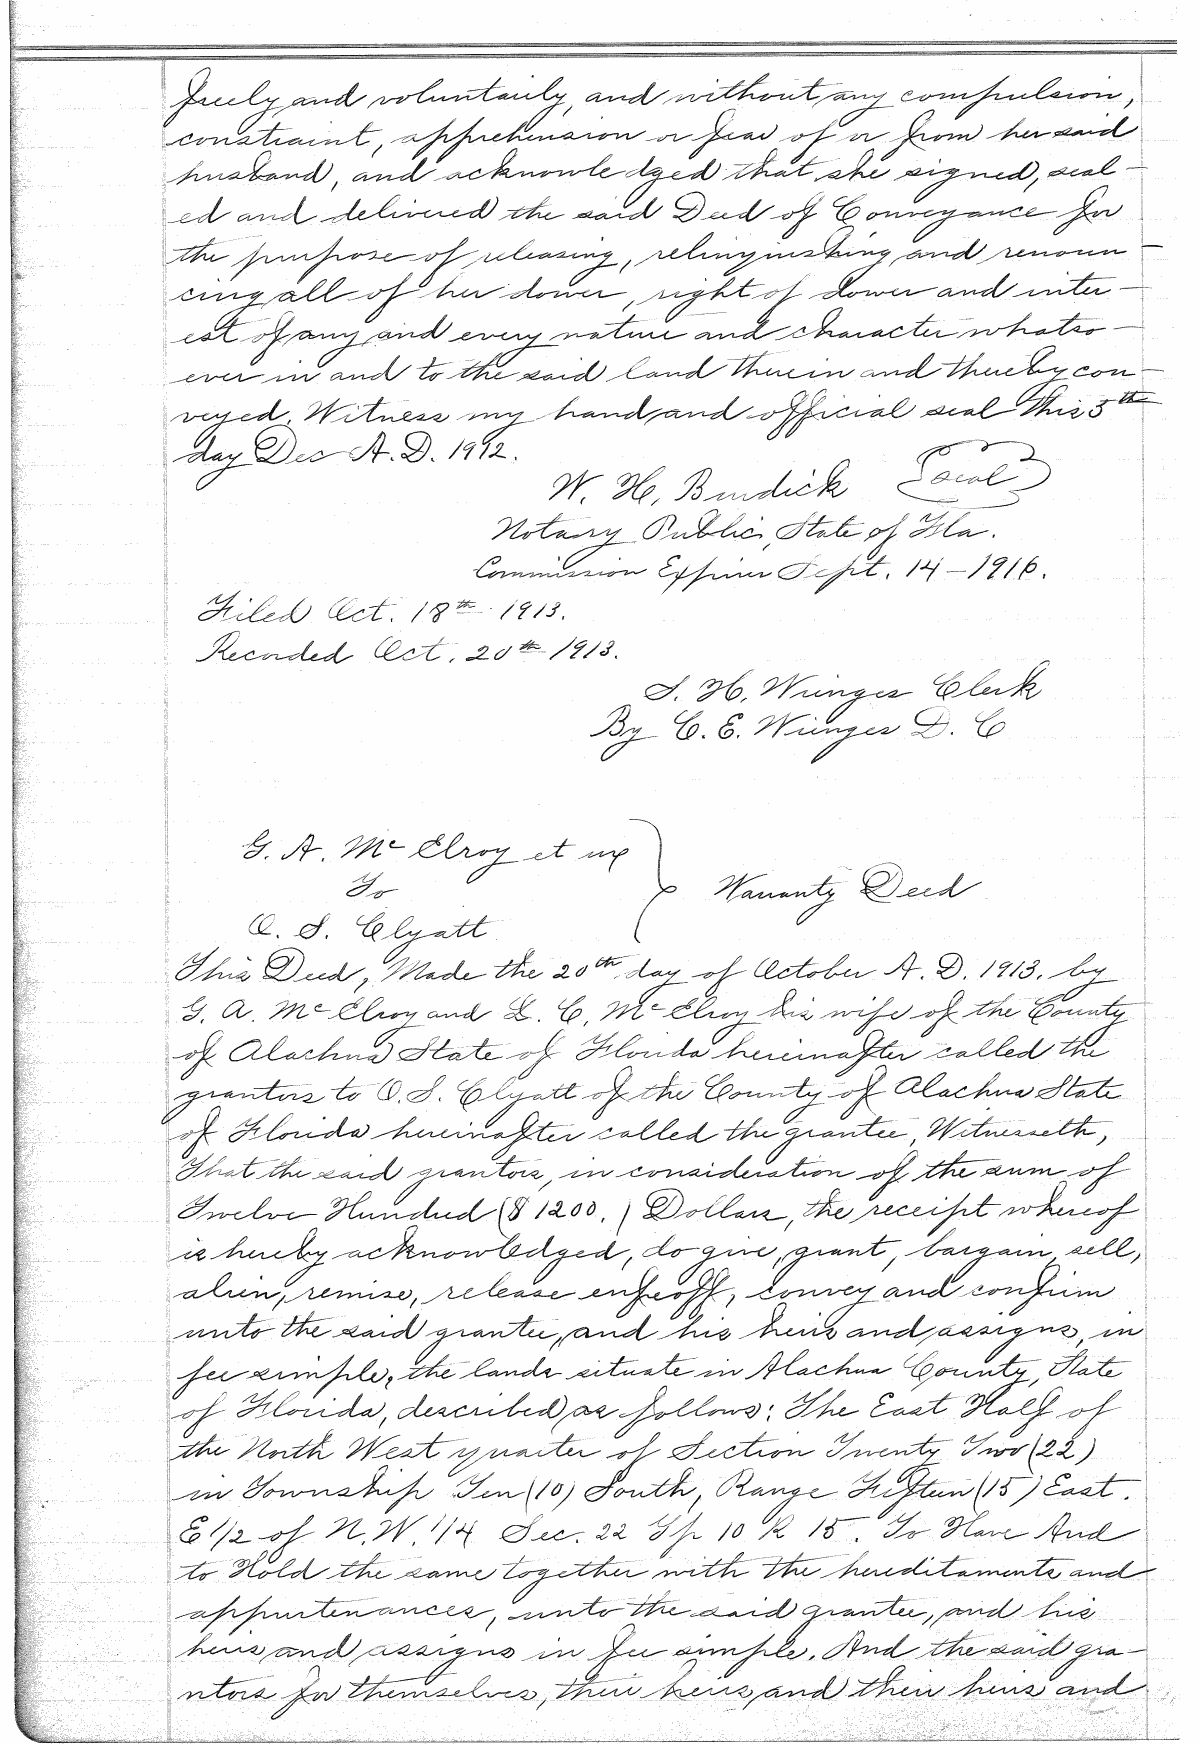 freely and voluntarily, and without any compulsion,
constraint, apprehension or fear of or from her said
husband, and acknowledged that she signed, seal-
ed and delivered the said Deed of Conveyance for
the purpose of releasing, relinquishing and renoun-
cing all of her dower, right of dower and inter-
est of any and every nature and character whatso-
ever in and to the said land therein and thereby con-
veyed. Witness my hand and official seal this 5th
day Dec A. D. 1912.
W. H. Burdick Seal
Notary Public, State of Fla.
Commission Expires Sept. 14-1916.
Filed Oct. 18th 1913.
Recorded Oct. 20th 1913.
S. H. Wienges Clerk
By C. E. Wienges D. C
G. A. McElroy et ux
To
Warranty Deed
O. S. Clyatt
This Deed, Made the 20th day of October A. D. 1913. by
G. A. McElroy and L. C. McElroy his wife of the County
of Alachua State of Florida hereinafter called the
grantors to O. S. Clyatt of the County of Alachua State
of Florida hereinafter called the grantee, Witnesseth,
That the said grantors, in consideration of the sum of
Twelve Hundred ($1200.) Dollars, the receipt whereof
is hereby acknowledged, do give, grant, bargain, sell,
alien, remise, release enfeoff, convey and confirm
unto the said grantee, and his heirs and assigns, in
fee simple, the lands situate in Alachua County, State
of Florida, described as follows: The East Half of
the North West quarter of Section Twenty Two (22)
in Township Ten (10) South, Range Fifteen (15) East.
E 1/2 of N.W. 1/4 Sec. 22 Tp 10 R 15. To Have And
to Hold the same together with the hereditaments and
appurtenances, unto the said grantee, and his
heirs and assigns in fee simple. And the said gra-
ntors for themselves, their heirs, and their heirs and